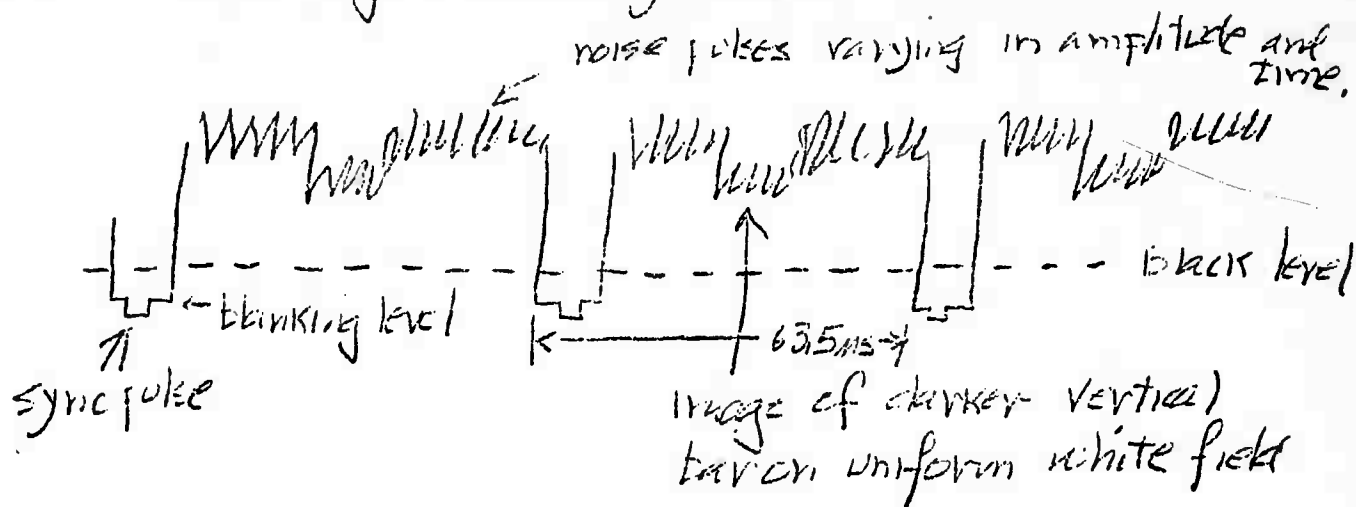 noise pulses varying in amplitude and
time.
black level
blanking level
63.5 μs
sync pulse
image of darker vertical
bar on uniform white field